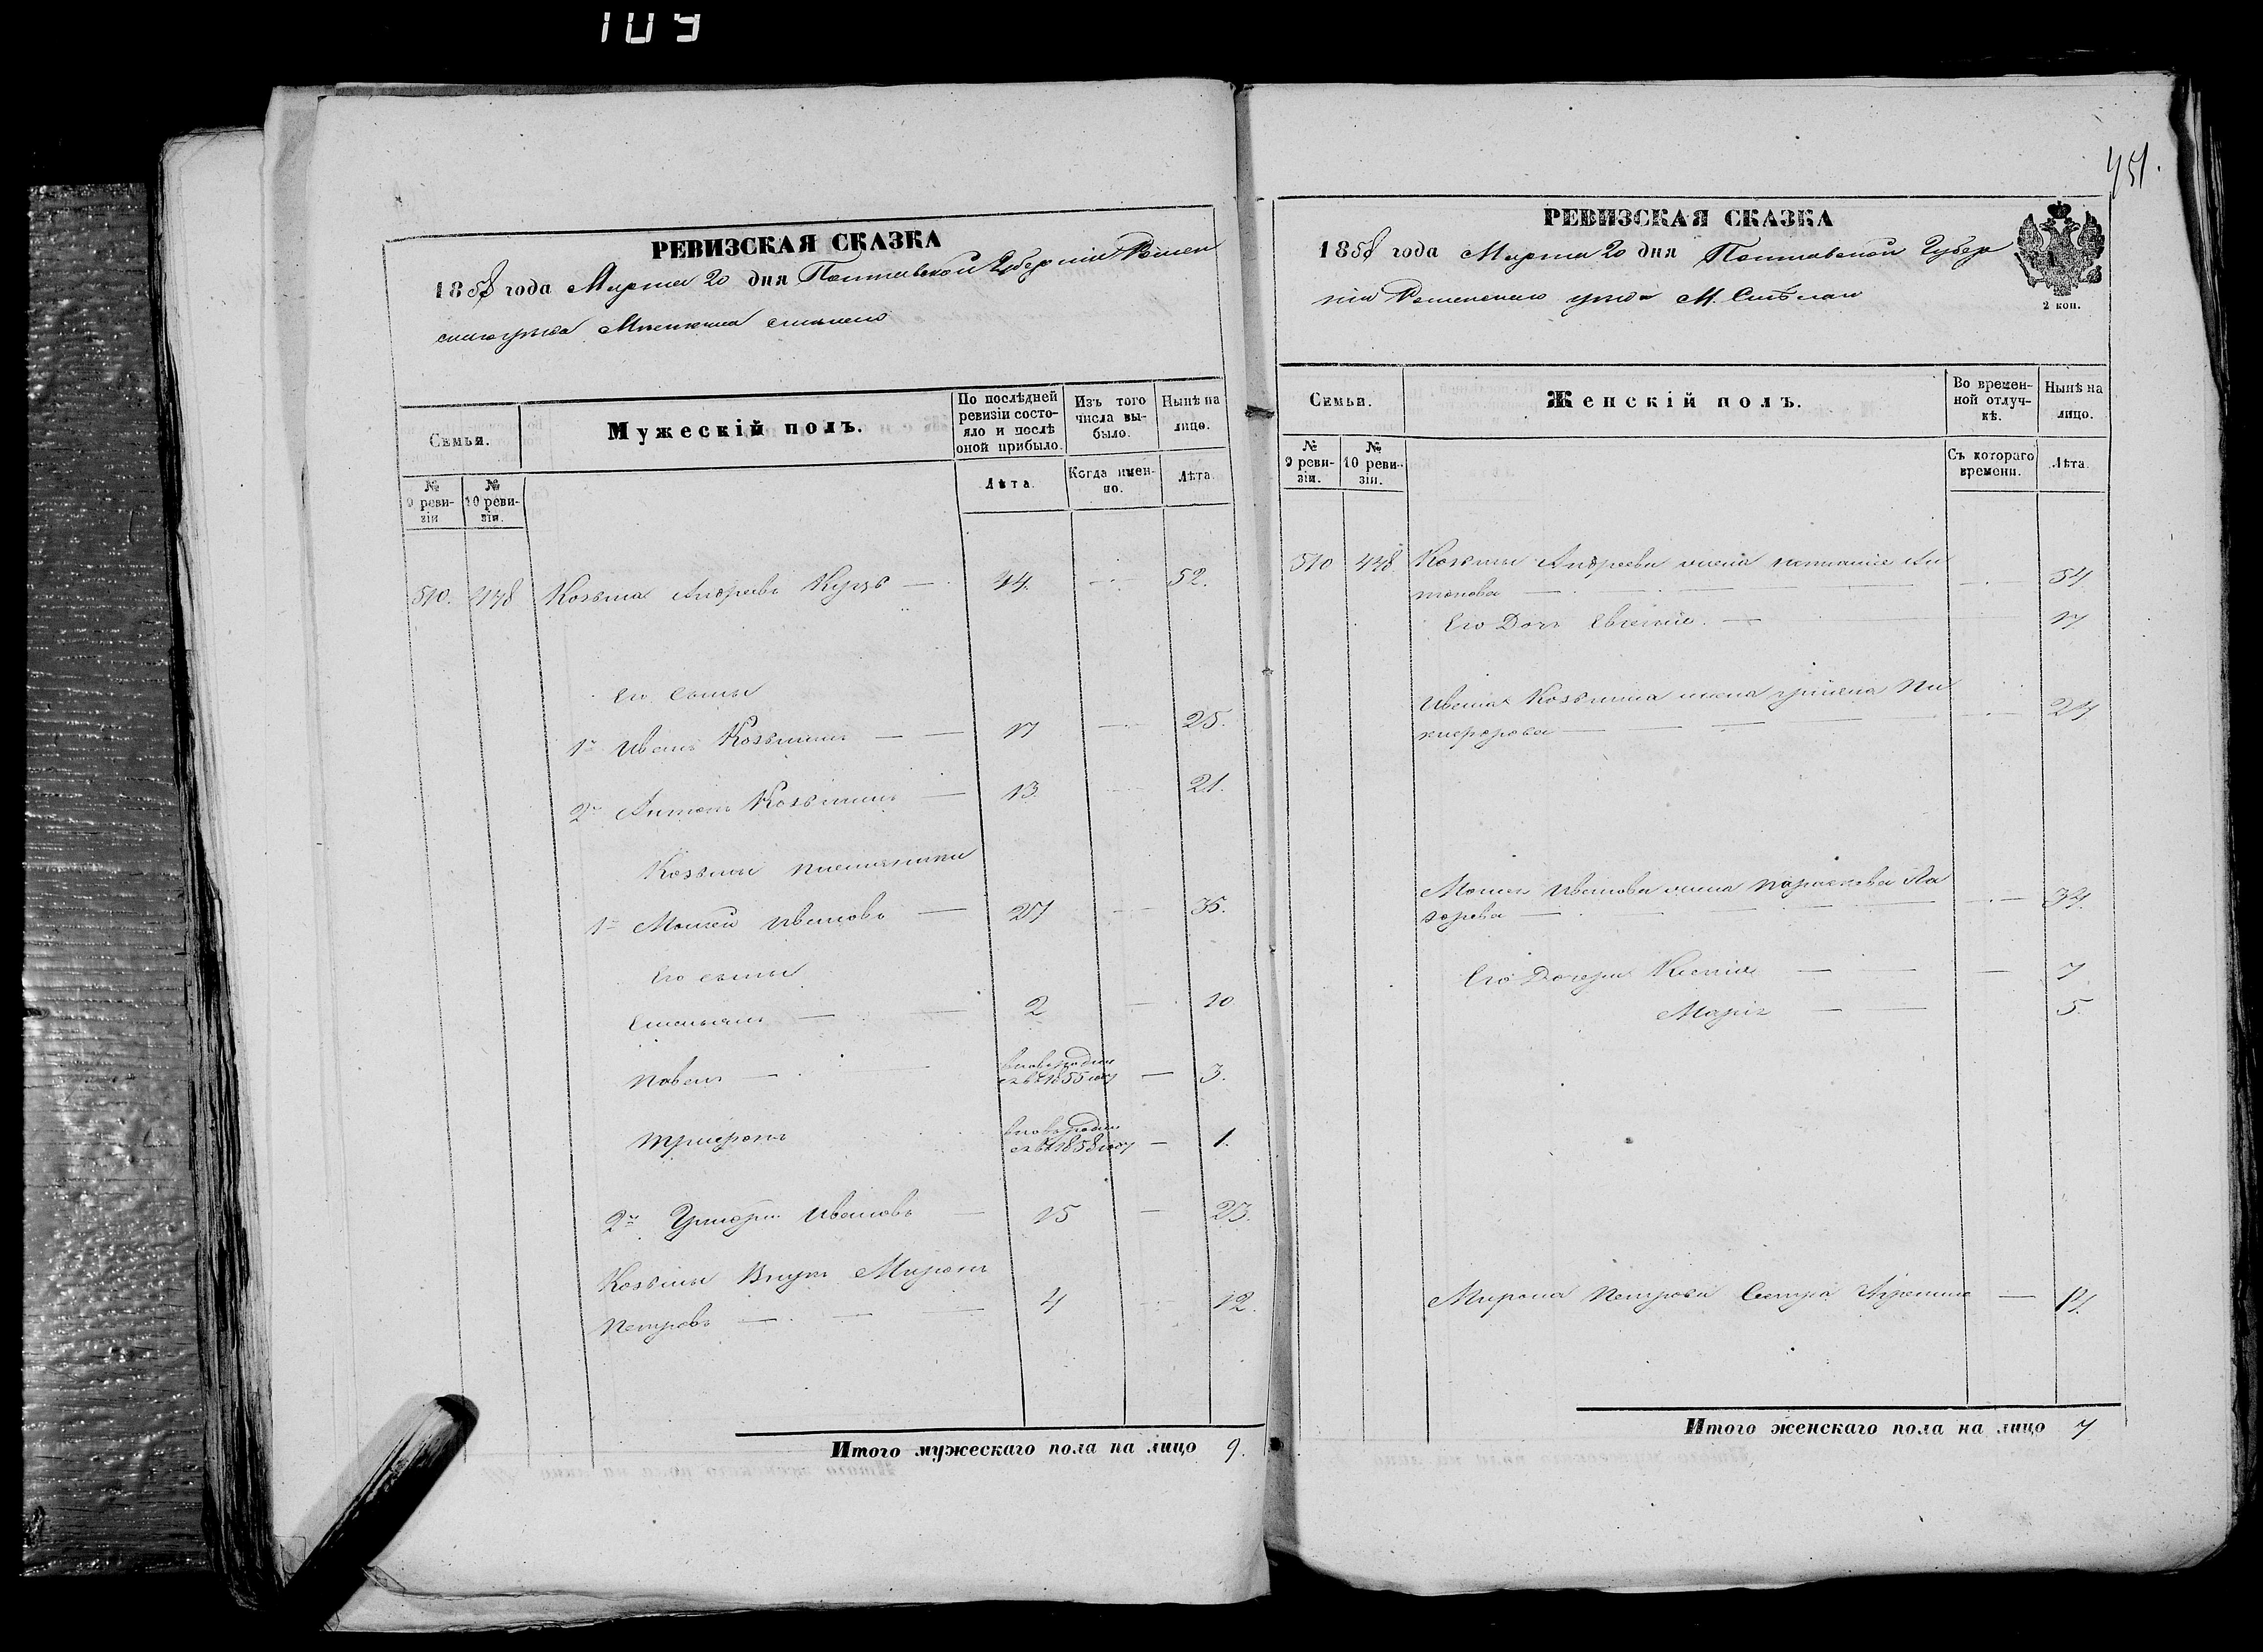 109
РЕВИЗСКАЯ СКАЗКА
1858 года Марта 20 дня Полтавской Губерніи Ромен
скаго уезда Местечка Смелаго
Семьи.
Мужескій полъ.
По послѣдней ревизіи состояло и послѣ оной прибыло.
Изъ того числа выбыло.
Нынѣ на лицо.
№ 9 ревизіи
№ 10 ревизіи.
Лѣта.
Когда именно.
Лѣта.
510. 448 Козьма Андреевъ 44. 52.
Его сыны
1й Иванъ Козьминъ 17 25.
2й Антонъ Козьминъ 13 21.
Козьмы племянники
1й Моисей Ивановъ 27 35.
Его сыны
Емельянъ 2 10
Павелъ
вновь родил
ся в 1855 году 3.
Трифонъ
вновь родил
ся в 1858 году 1.
2й Григорій Ивановъ 15 23.
Козьмы Внукъ Миронъ
Петровъ 4 12.
Итого мужескаго пола на лицо 9.
451.
РЕВИЗСКАЯ СКАЗКА
1858 года Марта 20 дня Полтавской Губер
ніи Роменскаго уезда М. Смѣлаго
2 коп.
Семьи.
Женскій полъ.
Во временной отлучкѣ.
Нынѣ на лицо.
№ 9 ревизіи.
№ 10 ревизіи.
Съ котораго времени.
Лѣта.
510 448. Козьмы Андреева жена Ан
тонова 54
Его Дочь Евгенія 17
Ивана Козьмина жена Ни
кифорова 24
Моисея Иванова жена Параскева Ла
зарева 34.
Его Дочери Ксенія 7
Марія 5.
Мирона Петрова Сестра 14.
Итого женскаго пола на лицо 7